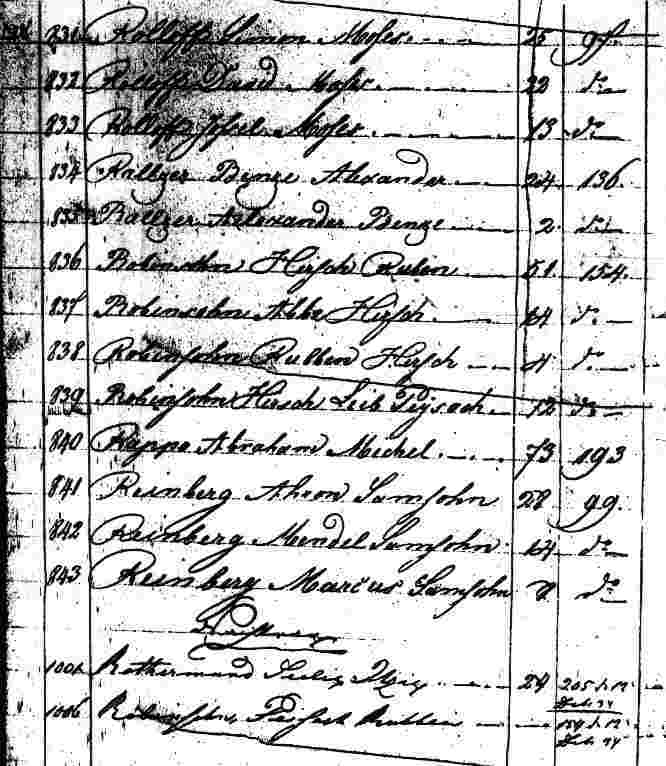 831 Rolloffs Simon Moses 25 98.
832 Rolloffs David Moses 22 do
833 Rolloffs Jossel Moses 13 do
834 Rallzer Benze Alexander 24 136.
835 Rallzer Alexander Benze 2 do
836 Robinsohn Hirsch Ruben 51 154.
837 Robinsohn Abbe Hirsch 14 do
838 Robinsohn Rubben Hirsch 4 do
839 Robinsohn Hirsch Leib Peysach 12 do
840 Rappo Abraham Michel 73 193
841 Reinberg Ahron Samsohn 28 99.
842 Reinberg Mendel Samsohn 14 do
843 Reinberg Marcus Samsohn do
Rothermund 24 205
1006 Robinsohn Peisach Rubbin 154